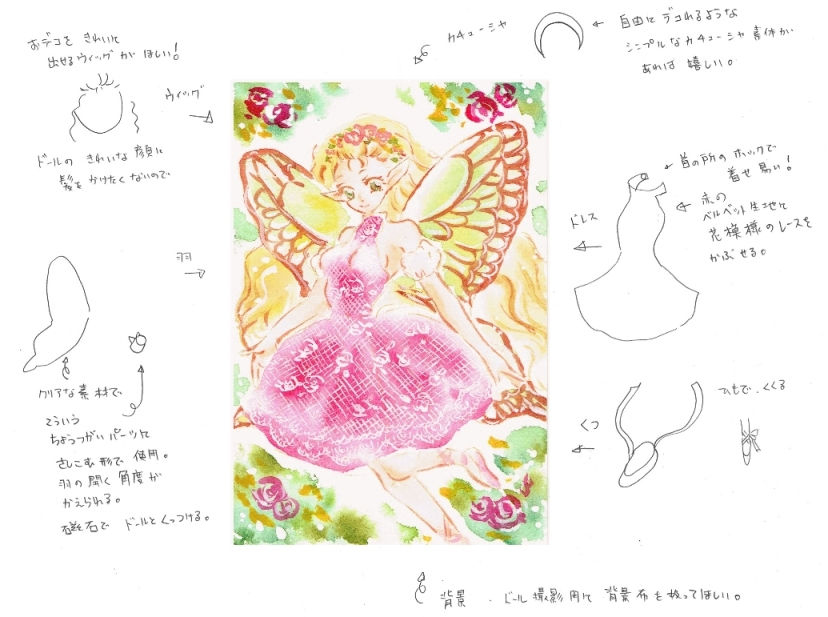 おデコを きれいに
出せるウィッグが ほしい!
ウィッグ
ドールの きれいな 顔に
髪を かけたくないので
カチューシャ
自由に デコれるような
シンプルな カチューシャ 素体が
あれば 嬉しい。
首の所の ホックで
着せ易い!
ドレス
赤の
ベルベット生地に
花模様のレースを
かぶせる。
羽
クリアな素材で
こういう
ちょうつがいパーツに
さしこむ形で 使用。
羽の開く 角度が
かえられる。
磁石で ドールとくっつける。
くつ
ひもで、くくる
背景
・ドール撮影用に 背景布を 扱ってほしい。